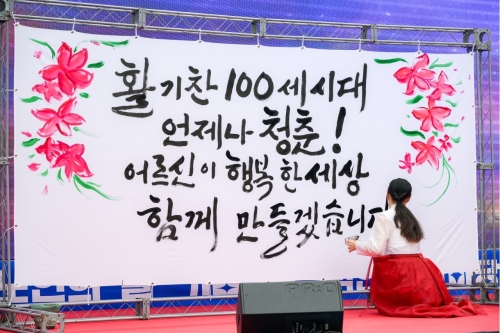 활기찬 100세시대
언제나 청춘!
어르신이 행복한세상
함께 만들겠습니다
PR:O